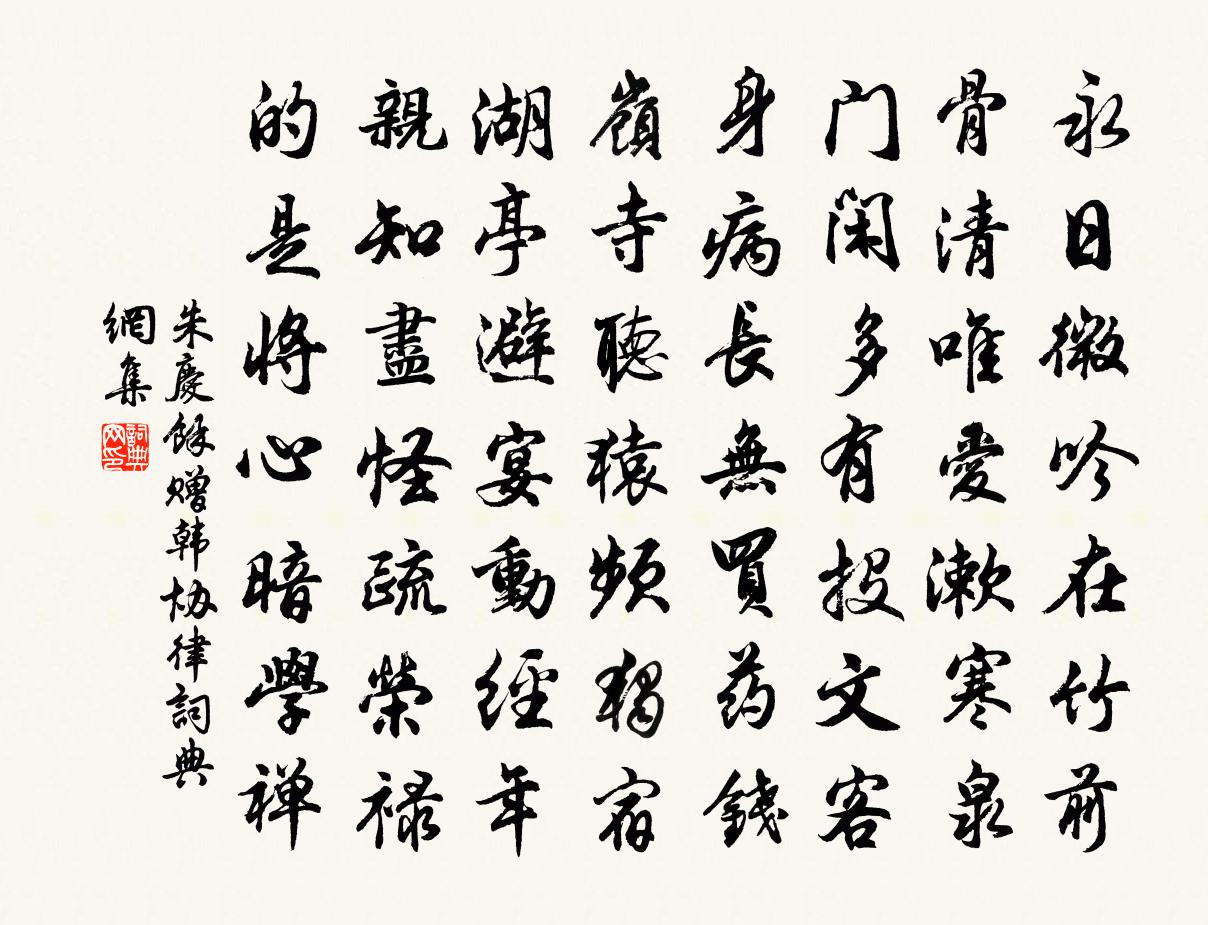 永日微吟在竹前
骨清唯愛漱寒泉
门闲多有投文客
身病長無買药錢
嶺寺聽猿頻獨宿
湖亭避宴動經年
親知盡怪疏榮禄
的是將心暗學禅
朱慶餘赠韩协律詞典
網集
詞典
网印